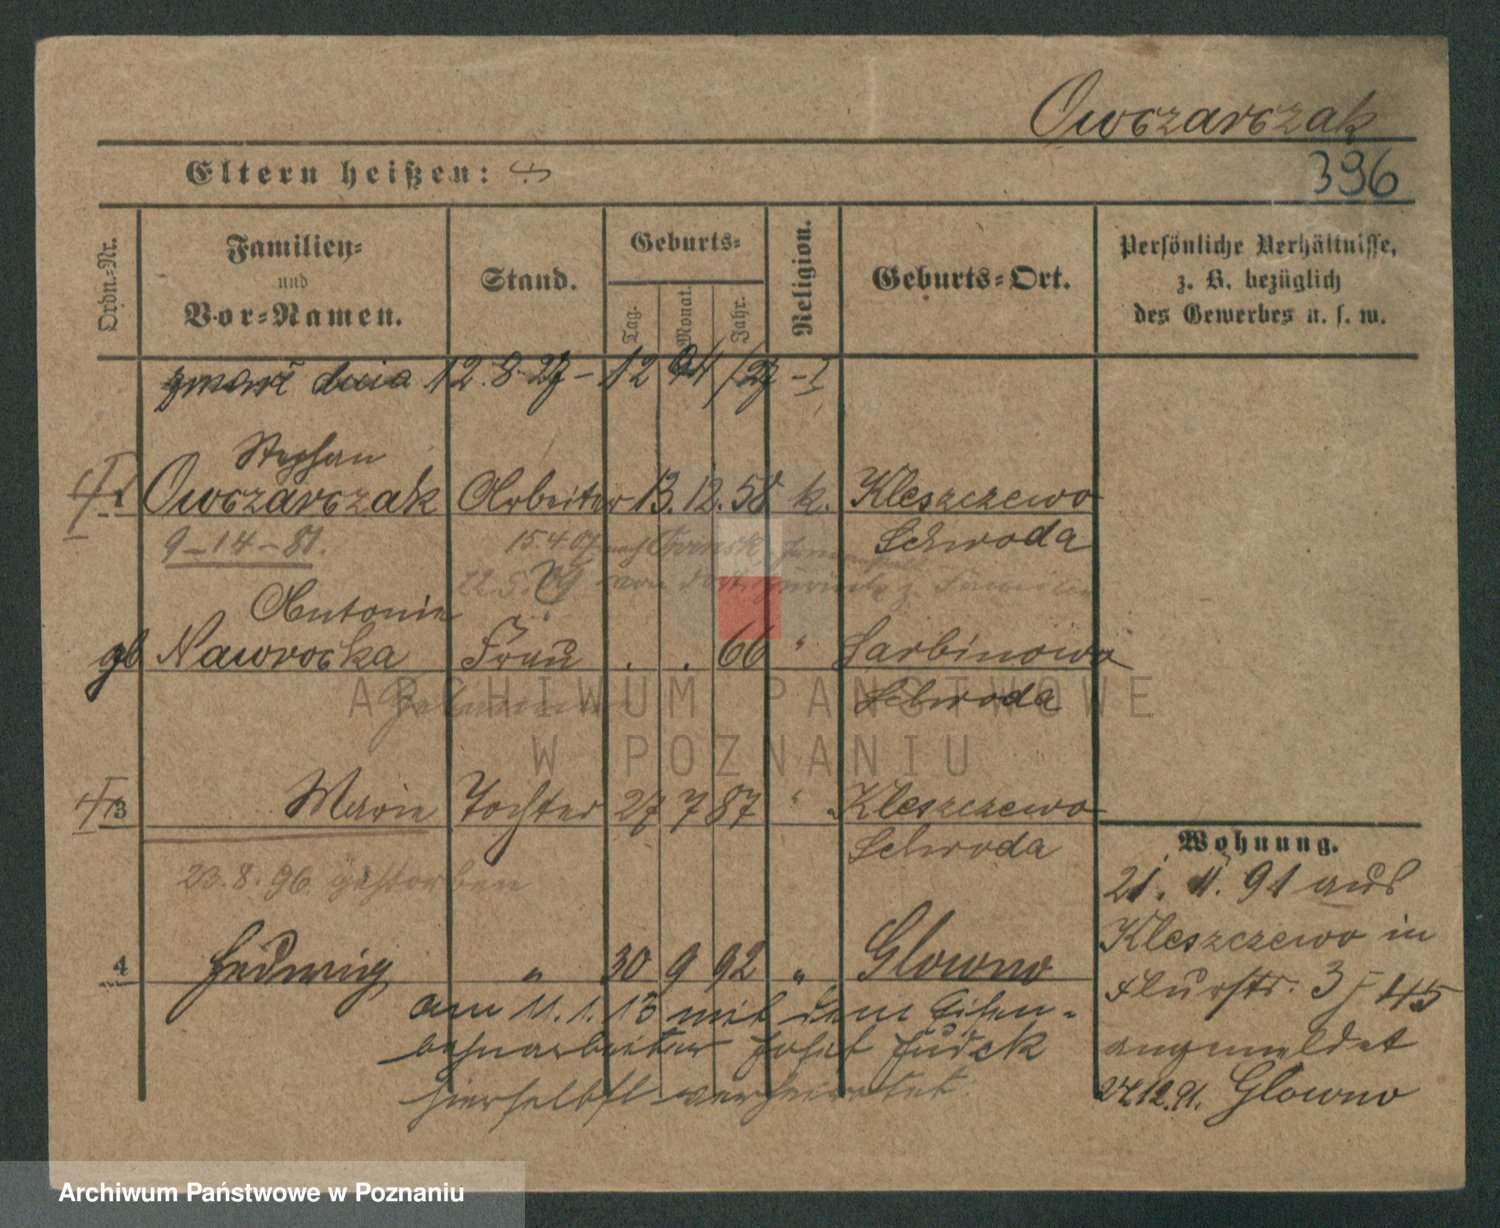 Owczarczak
Eltern heißen:
396
Ordn.-Nr.
Familien-
und
Vor-Namen.
Stand.
Geburts-
Tag.
Monat.
Jahr.
Religion.
Geburts-Ort.
Persönliche Verhältnisse,
z. B. bezüglich
des Gewerbes u. s. w.
zmarł dnia 12.8.27 - 12
Stephan
1 Owczarczak Arbeiter 13. 12. 58 k. Kleszczewo
9-14-81. Schroda
15.4.07 nach
22.5.09 von
Antonie
gb Nawrocka Frau . . 66 " Sarbinowo
Schroda
ARCHIWUM PAŃSTWOWE
W POZNANIU
3 Marie Tochter 27 7 87 " Kleszczewo
Schroda
23.8.96 gestorben
4 Hedwig " 30 9 92 " Glowno
am 11.1.13 mit dem Eisen-
bahnarbeiter Josef Judek
hierselbst verheiratet
Wohnung.
21. 11. 91 aus
Kleszczewo in
Flurstr. 3 J 45
angemeldet
12.91. Glowno
Archiwum Państwowe w Poznaniu